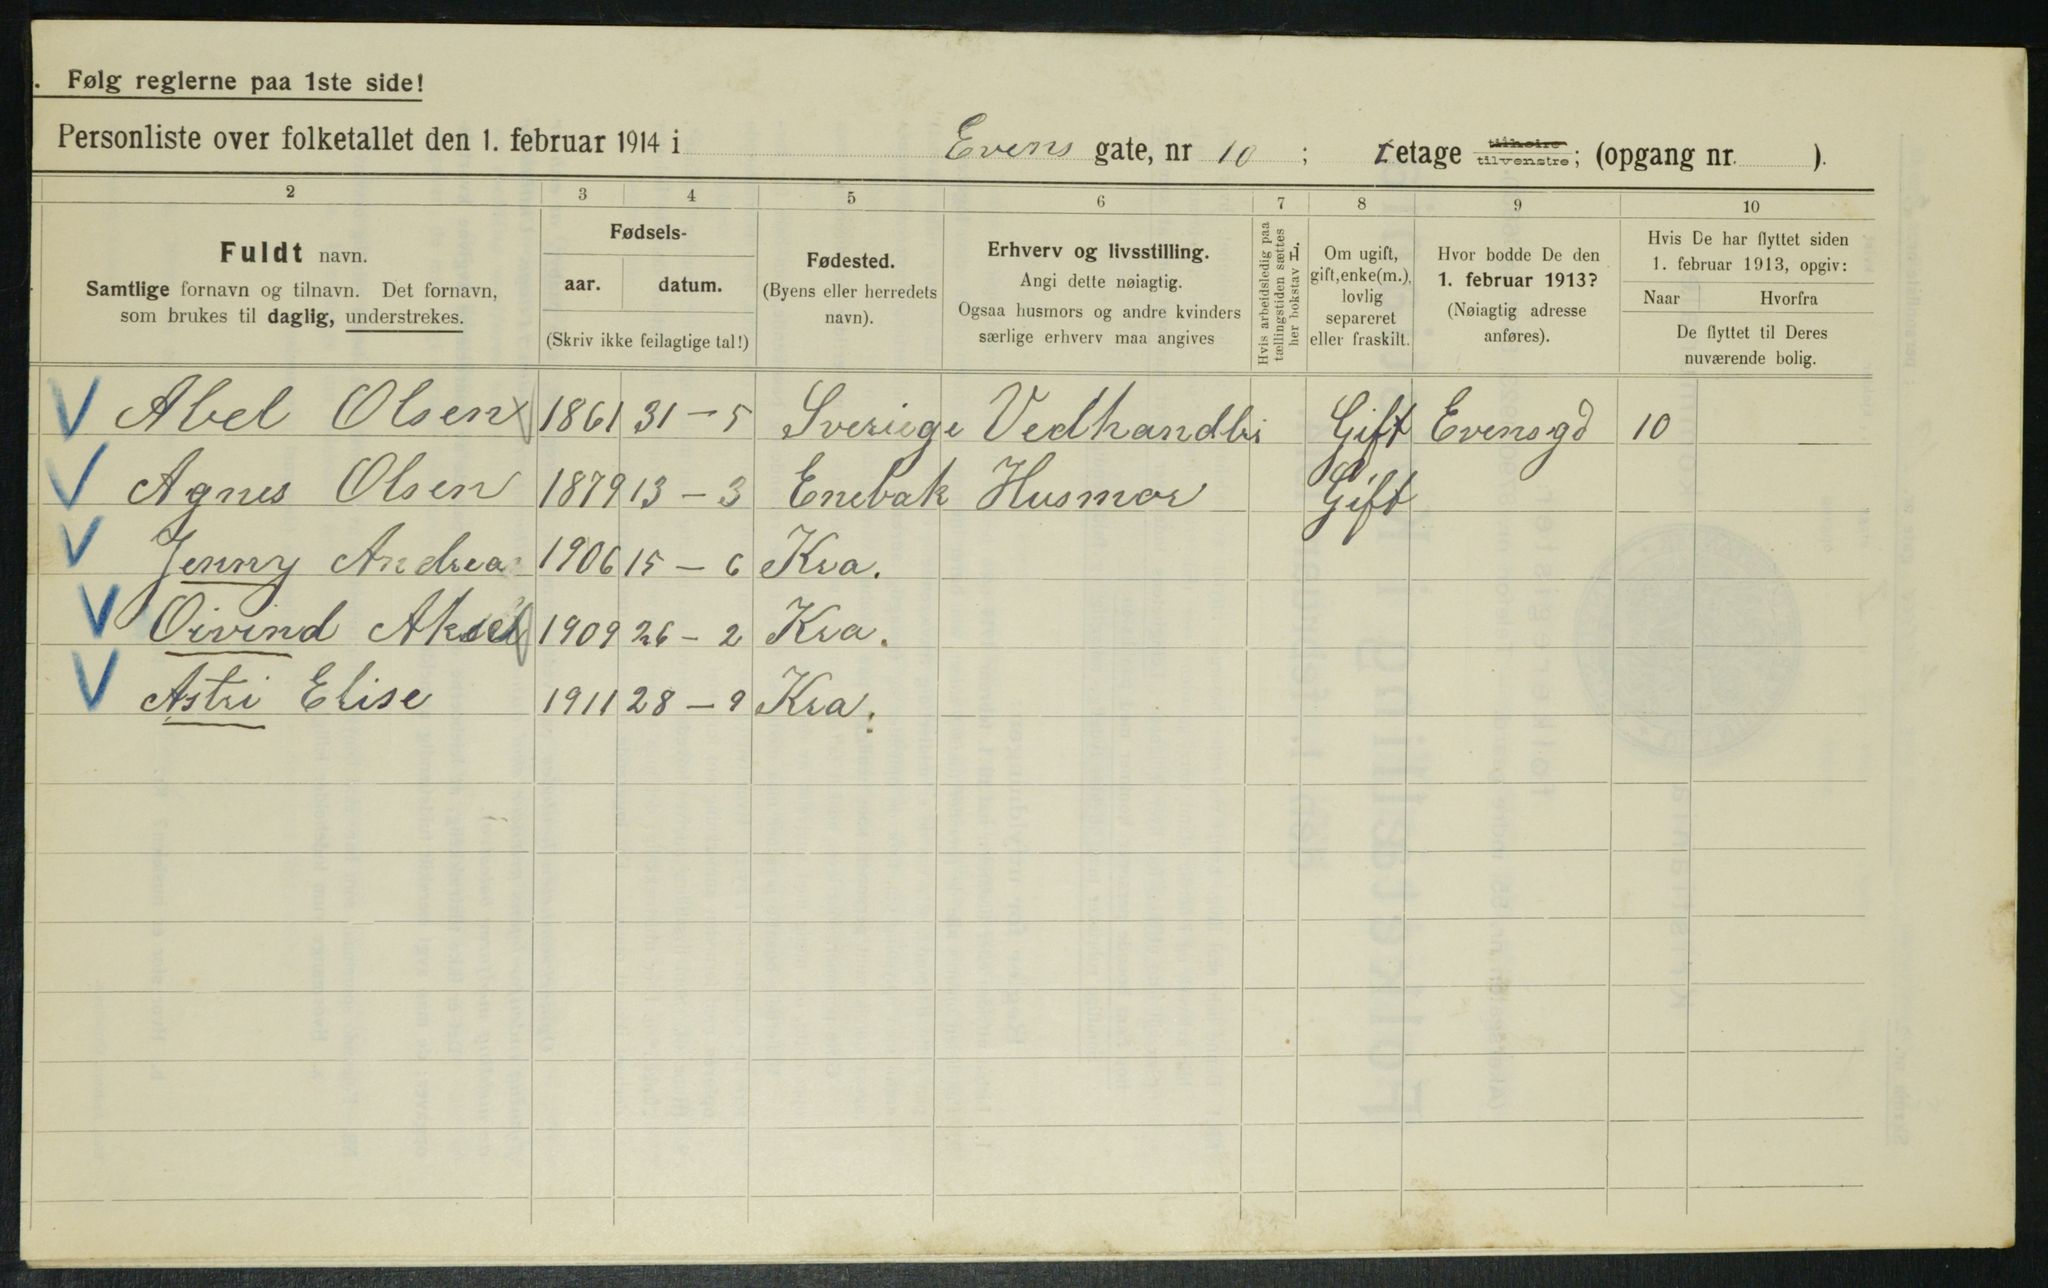 . Følg reglerne paa 1ste side!
Personliste over folketallet den 1. februar 1914 i Evens gate, nr 10 ; 1 etage tilhøire tilvenstre; (opgang nr. ).
2 3 4 5 6 7 8 9 10
Fuldt navn.
Samtlige fornavn og tilnavn. Det fornavn,
som brukes til daglig, understrekes.
Fødsels-
aar. datum.
(Skriv ikke feilagtige tal!)
Fødested.
(Byens eller herredets
navn).
Erhverv og livsstilling.
Angi dette nøiagtig.
Ogsaa husmors og andre kvinders
særlige erhverv maa angives
Hvis arbeidsledig paa
tællingstiden sættes
her bokstav L.
Om ugift,
gift, enke(m.),
lovlig
separeret
eller fraskilt.
Hvor bodde De den
1. februar 1913?
(Nøiagtig adresse
anføres).
Hvis De har flyttet siden
1. februar 1913, opgiv:
Naar Hvorfra
De flyttet til Deres
nuværende bolig.
Abel Olsen 1861 31 – 5 Sveriege Vedhandler Gift Evensgd 10
Agnes Olsen 1879 13 – 3 Enebak Husmor Gift
Jenny Andrea 1906 15 – 6 Kra.
Oivind Aksel 1909 26 – 2 Kra.
Astri Elise 1911 28 – 9 Kra.